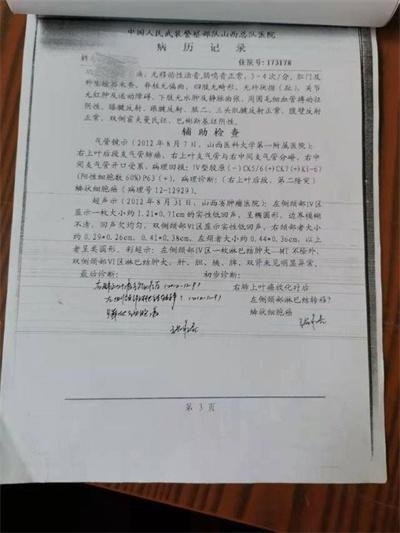 中国人民武装警察部队山西总队医院
病 历 记 录
住院号:173178
痛,无移动性浊音,肠鸣音正常,3-4次/分,肛门及
外生殖器未查。脊柱无偏曲,四肢无畸形,无杵状指(趾),关节
无红肿及运动障碍,下肢无水肿及静脉曲张,周围毛细血管搏动征
阴性。膝腱反射、跟腱反射、肱二、三头肌腱反射正常,腹壁反射
正常,双侧霍夫曼氏征、巴彬斯基征阴性。
辅 助 检 查
气管镜示(2012年8月7日,山西医科大学第一附属医院):
右上叶后段支气管肺癌,右上叶支气管与右中间支气管分嵴,右中
间支气管开口受累。病理回报:IV型胶原(-)CK5/6(+)CK7(+)Ki-67
(阳性细胞数60%)P63(+),病理诊断:(右上叶后段、第二隆突)
鳞状细胞癌(病理号12-12929)。
超声示(2012年8月31日,山西省肿瘤医院):左侧颈部IV区
显示一枚大小约1.21*0.71cm的实性低回声,呈椭圆形,边界模糊
不清,回声欠均匀,双侧颈部IV区显示实性低回声,右颈部者大小
约0.29*0.26cm、0.41*0.38cm,左颈者大小约0.44*0.36cm,以上
者呈类圆形。彩超示:左侧颈部IV区一枚淋巴结肿大--MT不除外,
双侧颈部IV区淋巴结肿大,肝、胆、胰、脾、双肾未见明显异常。
最后诊断: 初步诊断:
右肺上叶癌放化疗后
左侧颈部淋巴结转移?
鳞状细胞癌
第 3 页